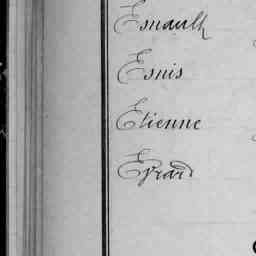 Esnault
Esnis
Etienne
Evrard